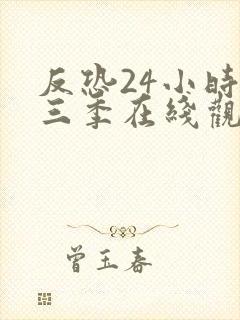 反恐24小時
三季在綫觀
曾玉春